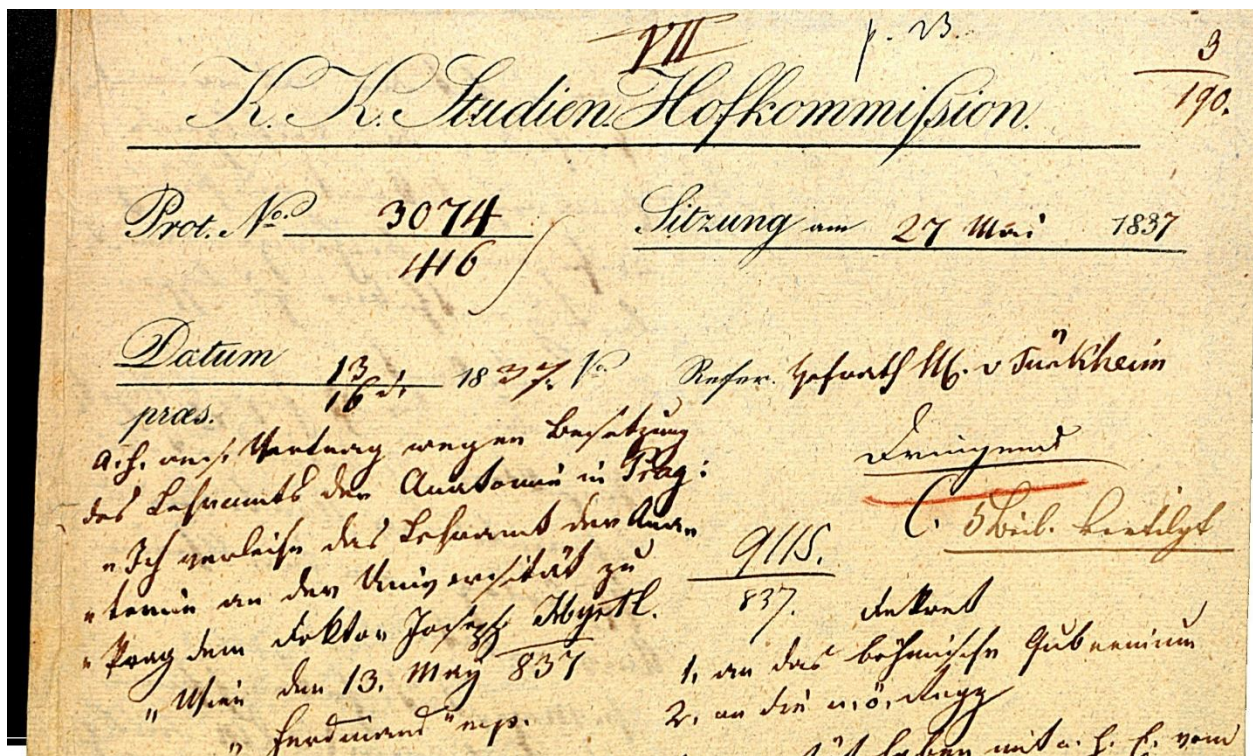 VII
p. 23.
3
190.
K. K. Studien Hofkommißion.
Prot. No. 3074
416
Sitzung am 27 Mai 1837
Datum
præs.
13
16
1837.
Refer. Hofrath v Türkheim
Dringend
A. h. Vortrag wegen Besetzung
des Lehramts der Anatomie in Prag:
„Ich verleihe das Lehramt der Ana„
„tomie an der Universität zu
„Prag dem Doktor Joseph Hyrtl.
„Wien den 13. May 837
„Ferdinand" mp.
C. 5 Beil.
9115.
837.
Dekret
1, an das böhmische Gubernium
2, an die n. ö. Regg
haben mit a. h. E. vom